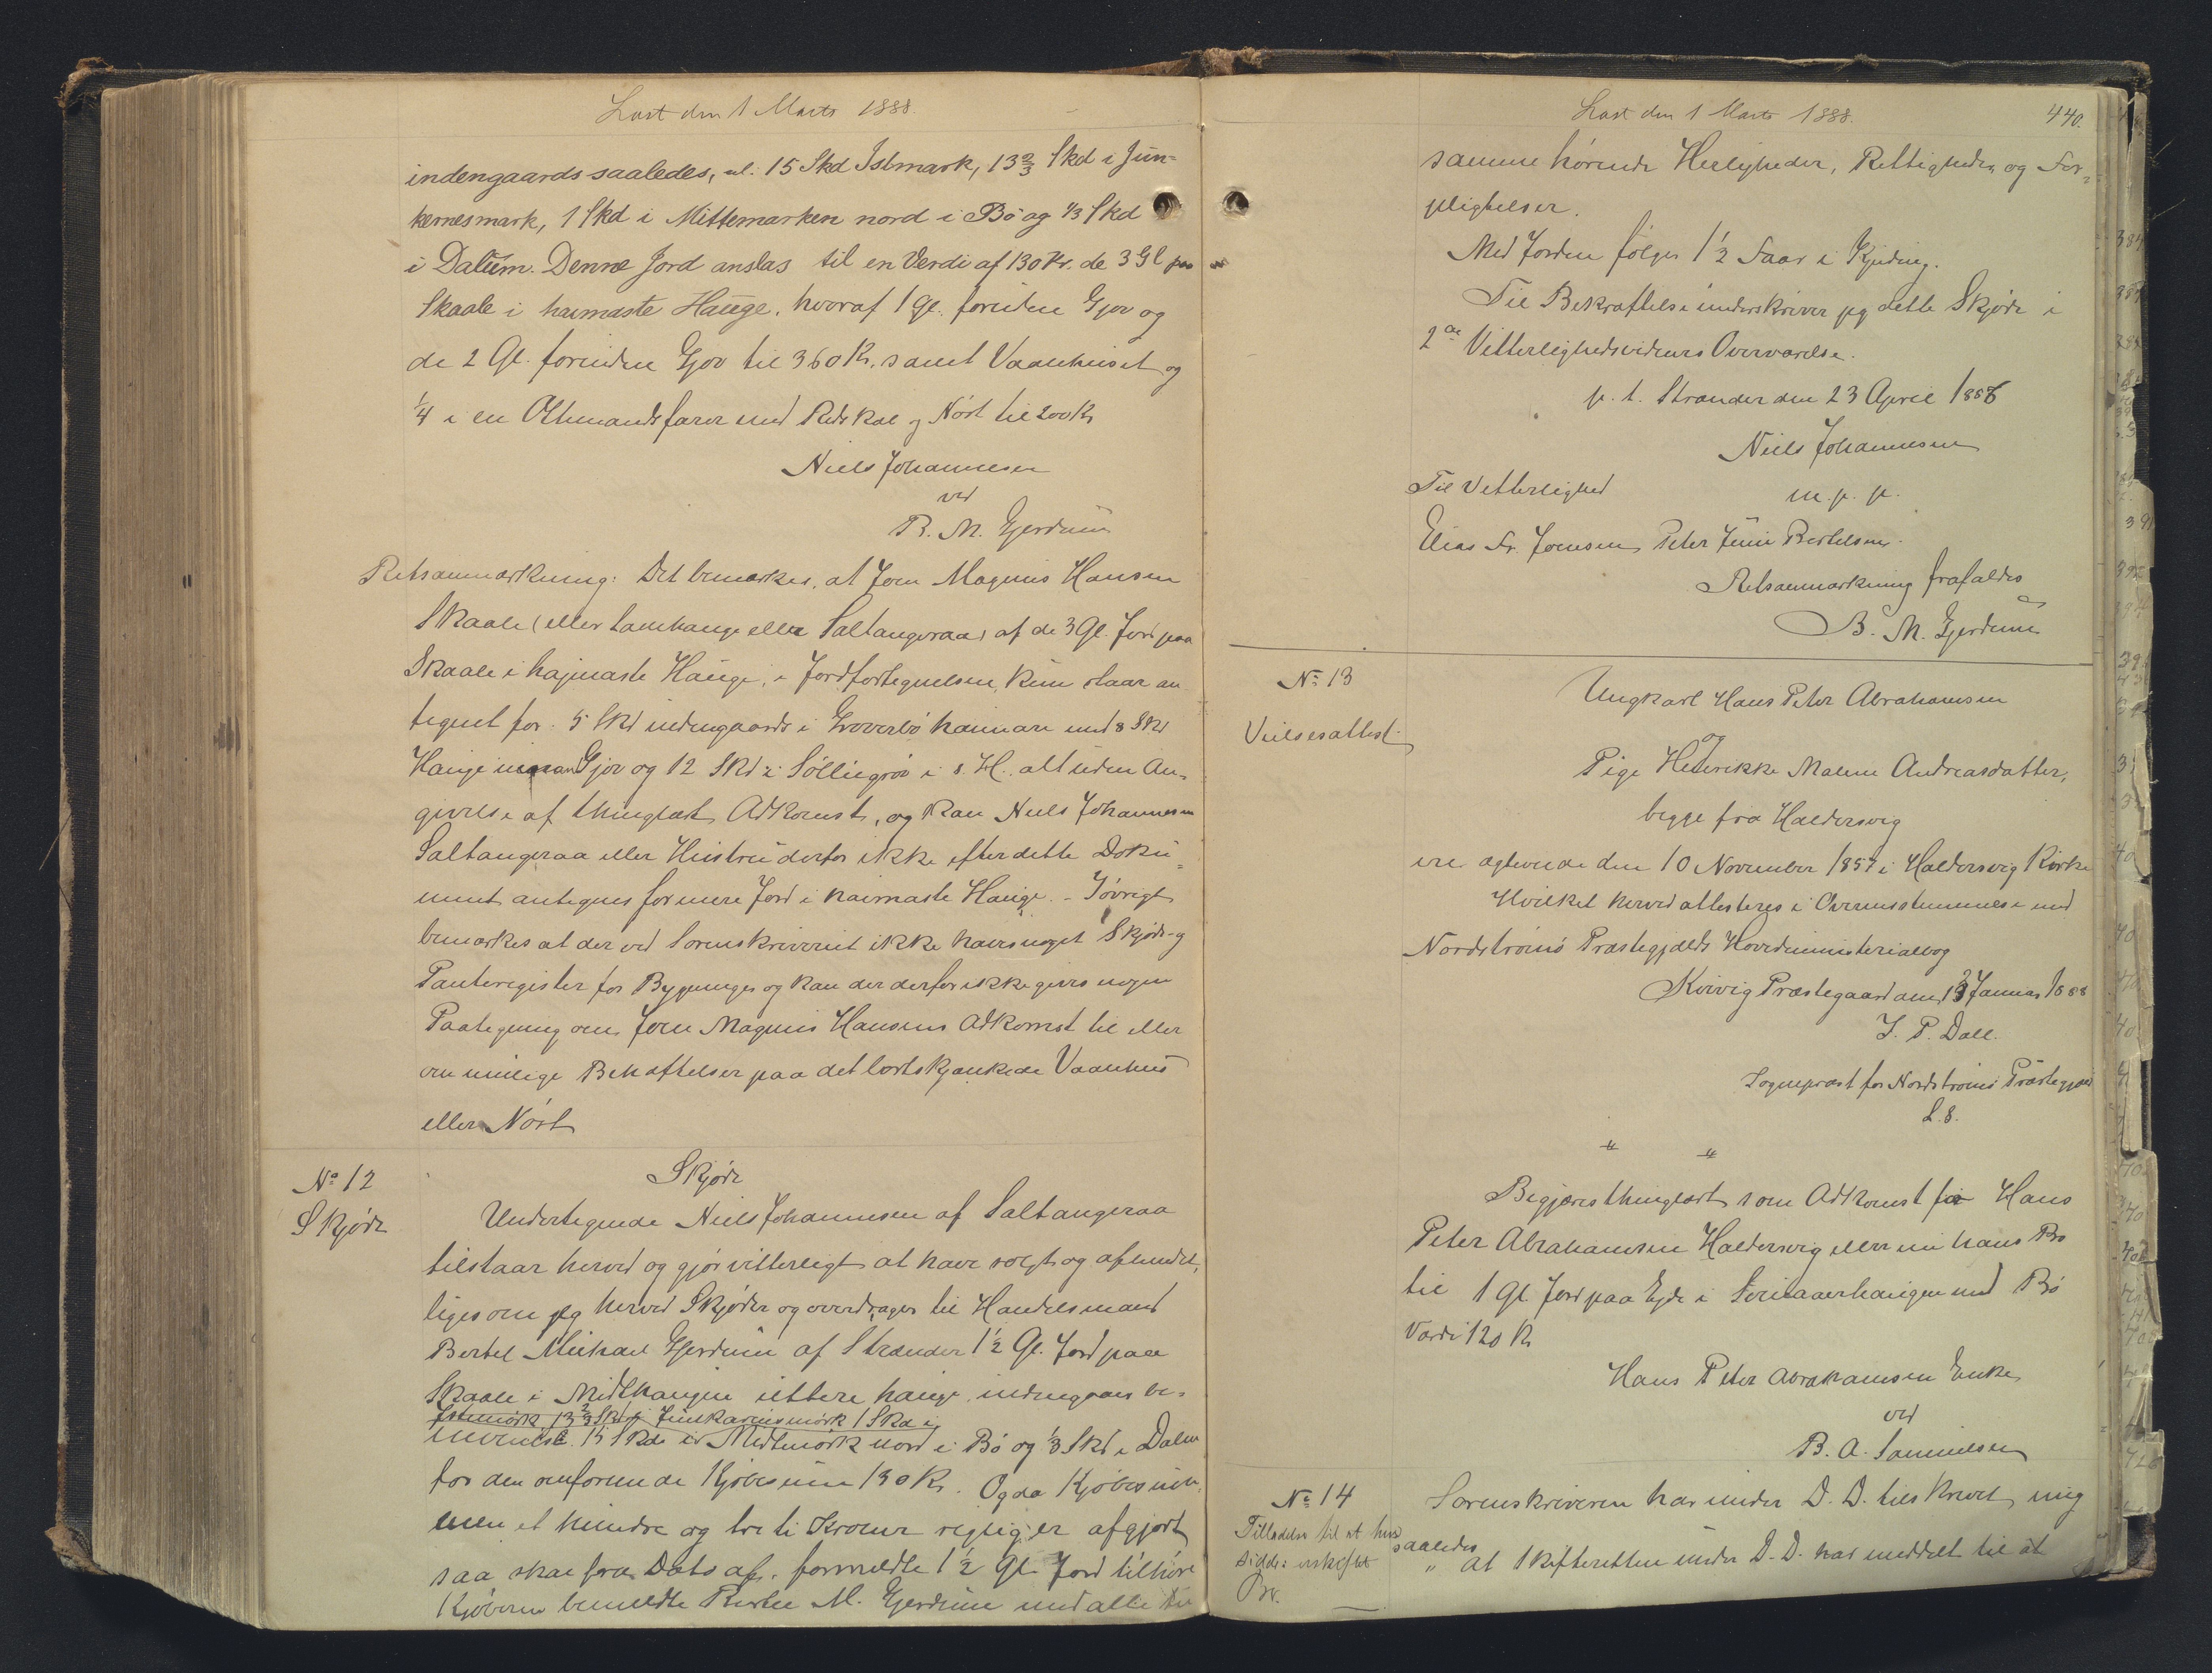 Læst den 1 Marts 1888.
indengaards saaledes, al: 15 Skd Istmark, 13 2/3 Skd i Jun-
kernesmark, 1 Skd i Mittemarken nord i Bö og 1/3 Skd
i Dalum. Denne Jord anslas til en Verdi af 130 Kr. de 3 Gl paa
Skaale i haimaste Hauge, hvoraf 1 Gl. foruden Gjov og
de 2 Gl. forinden Gjov til 360 Kr. samt Vaanhuset og
1/4 i en Ottemandsfarer med Redskal og Nöst til 200 Kr
Niels Johannesen
ved
B. M. Gjerdum
Retsanmærkning: Det bemærkes, at Joen Magnus Hansen
Skaale (eller Lamhauge eller Saltangeraa) af de 3 Gl. Jord paa
Skaale i hajmaste Hauge, i Jordfortegnelsen, kun staar an
tegnet for 5 Skd indengaards i Groverbö haimare med 8 Skd
Hauge Gjov og 12 Skd i Sölliegröv i s. H., alt uden An-
givelse af thinglæst Adkomst, og kan Niels Johannesen
Saltangeraa eller Hustru derfor ikke efter dette Doku-
ment antegnes for mere Jord i haimaste Hauge. - Iövrigt
bemærkes at der ved Sorenskriveriet ikke haves noget Skjöde- og
Panteregister for Bygninger og kan der derfor ikke gives nogen
Paategning om Joen Magnus Hansens Adkomst til eller
om mulige Behæftelser paa det bortskjænkede Vaanhus
eller Nöst
No 12
Skjöde
Skjöde
Undertegnede Niels Johannesen af Saltangeraa
tilstaar herved og gjör vitterligt at have solgt og afhændet,
ligesom jeg herved Skjöder og overdrager til Handelsmand
Bertel Michael Gjerdum af Strænder 1 1/2 Gl. Jord paa
Skaale i Midthaugen uttere hauge, indengaars be-
Istmörk 13 2/3 Skd i Junkarensmörk 1 Skd i
15 Skd i Midtmörk nord i Bö og 1/3 Skd i Dalen
for den omforenede Kjöbesum 130 Kr. Og da Kjöbesum-
men et hundre og treti Kroner rigtig er afgjort
saa skal fra Dato af, formeldte 1 1/2 Gl. Jord tilhöre
Kjöberen bemeldte Bertel M. Gjerdum med alle til
Læst den 1 Marts 1888.
440.
samme hörende Herligheder, Rettigheder og For-
pligtelser.
Med Jorden fölger 1 1/2 Faar i Kjuding.
Til Bekræftelse underskriver jeg dette Skjöde i
2de Vitterlighedsvidners Overværelse.
p. t. Strænder den 23 April 1886
Niels Johannesen
Til Vitterlighed
m. p. p.
Elias Fr. Joensen Peter Juni Bertelsen.
Retsanmærkning frafaldes
B. M. Gjerdum
No 13
Vielsesattest
Ungkarl Hans Peter Abrahamsen
og
Pige Hederikke Malene Andreasdatter,
begge fra Haldersvig
ere ægteviede den 10 November 1857 i Haldersvig Kirke
Hvilket herved attesteres i Overensstemmelse med
Nordströmö Præstegjælds Hovedministerialbog
Kvivig Præstegaard den 13 Januar 1888
J. P. Dall.
Sognepræst for Nordströmö Præstegjæld
L. S.
" "
Begjæres thinglæst som Adkomst for Hans
Peter Abrahamsen Haldersvig eller nu hans Bo
til 1 Gl. Jord paa Ejde i med Bö
Værdi 120 Kr
Hans Peter Abrahamsen Enke
ved
B. A. Samuelsen
No 14
Tilladelse til at hen
sidde i uskiftet
Bo.
Sorenskriveren har under D. D. tilskrevet mig
saaledes
" at Skifteretten under D. D. har meddelt til at